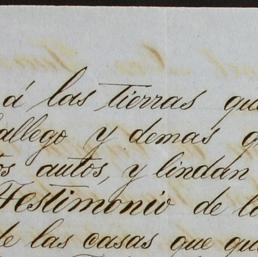 á las tierras que
allego y demas
os autos, y lindan
Testimonio de lo
de las casas que qu